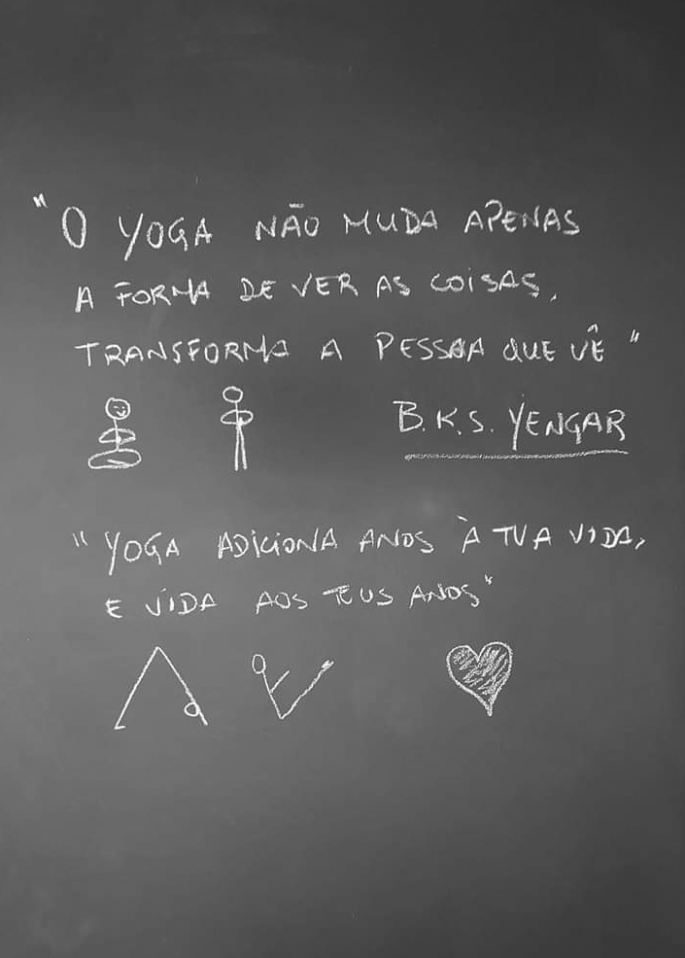 "O YOGA NÃO MUDA APENAS
A FORMA DE VER AS COISAS,
TRANSFORMA A PESSOA QUE VÊ"
B.K.S. YENGAR
"YOGA ADICIONA ANOS À TUA VIDA,
E VIDA AOS TEUS ANOS"